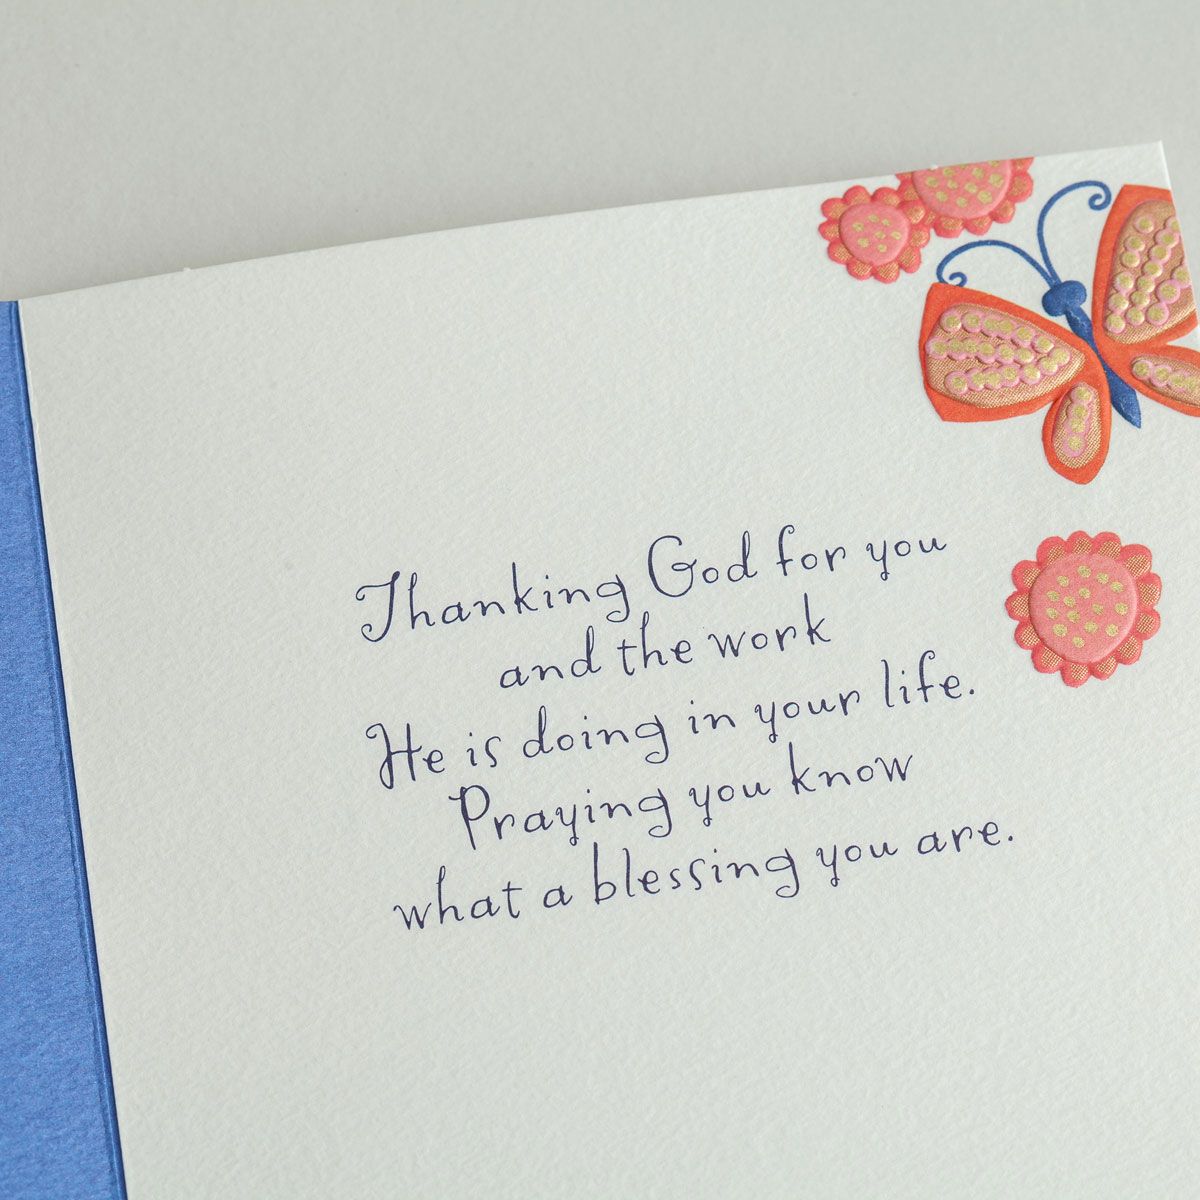 Thanking God for you
and the work
He is doing in your life.
Praying you know
what a blessing you are.